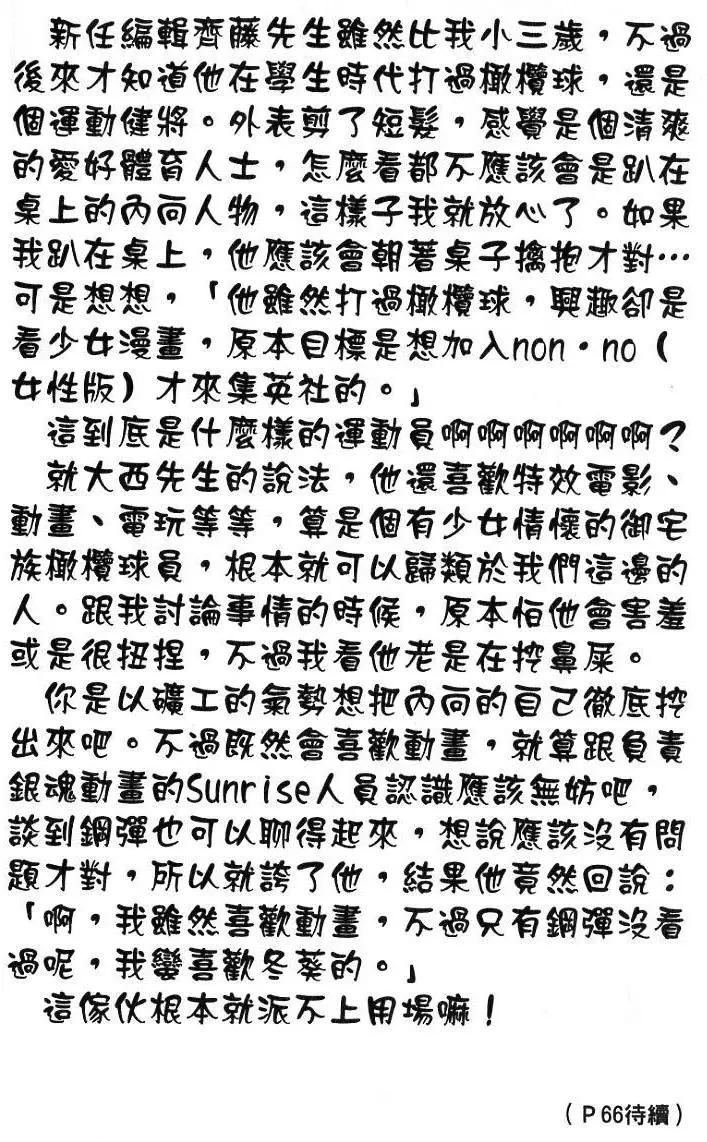 新任編輯齊藤先生雖然比我小三歲，不過
後來才知道他在學生時代打過橄欖球，還是
個運動健將。外表剪了短髮，感覺是個清爽
的愛好體育人士，怎麼看都不應該會是趴在
桌上的內向人物，這樣子我就放心了。如果
我趴在桌上，他應該會朝著桌子擒抱才對…
可是想想，「他雖然打過橄欖球，興趣卻是
看少女漫畫，原本目標是想加入non・no（
女性版）才來集英社的。」
這到底是什麼樣的運動員啊啊啊啊啊啊？
就大西先生的說法，他還喜歡特效電影、
動畫、電玩等等，算是個有少女情懷的御宅
族橄欖球員，根本就可以歸類於我們這邊的
人。跟我討論事情的時候，原本怕他會害羞
或是很扭捏，不過我看他老是在挖鼻屎。
你是以礦工的氣勢想把內向的自己徹底挖
出來吧。不過既然會喜歡動畫，就算跟負責
銀魂動畫的Sunrise人員認識應該無妨吧，
談到鋼彈也可以聊得起來，想說應該沒有問
題才對，所以就誇了他，結果他竟然回說：
「啊，我雖然喜歡動畫，不過只有鋼彈沒看
過呢，我蠻喜歡冬葵的。」
這傢伙根本就派不上用場嘛！
（P66待續）